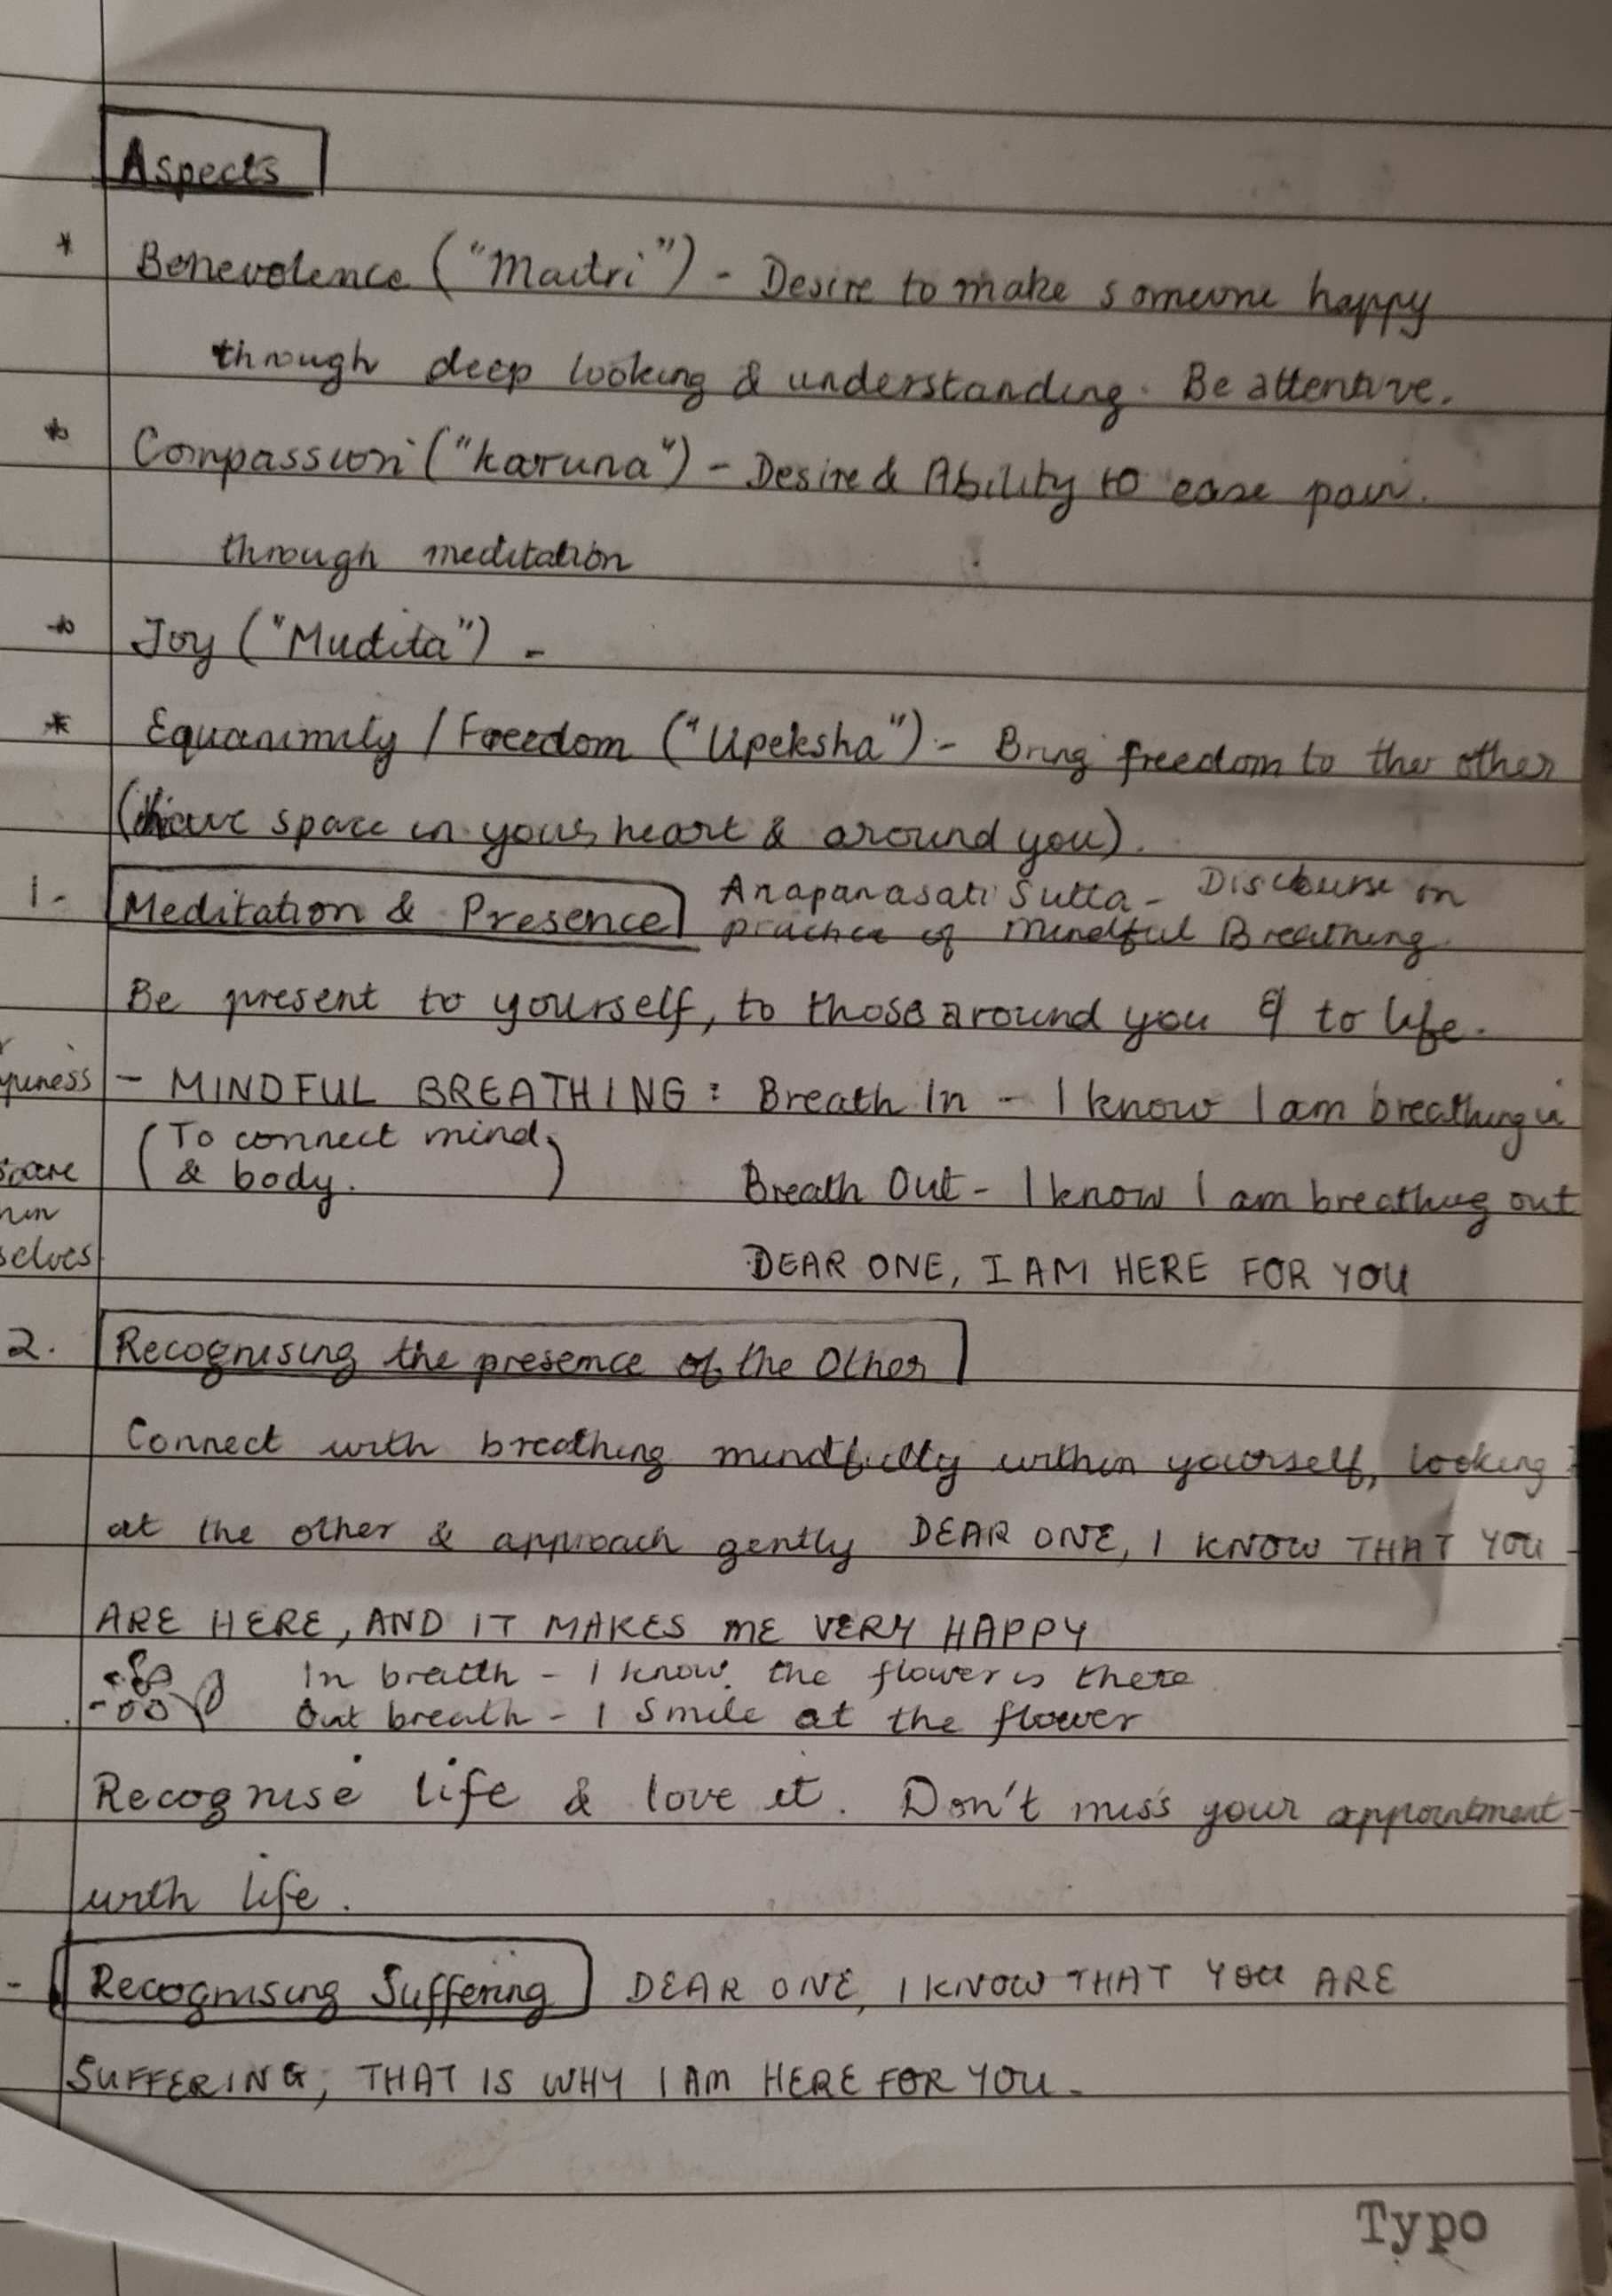 Aspects
* Benevolence ("Maitri") - Desire to make someone happy
through deep looking & understanding. Be attentive.
* Compassion ("karuna") - Desire & Ability to ease pain.
through meditation
* Joy ("Mudita") -
* Equanimity / Freedom ("Upeksha") - Bring freedom to the other
(have space in your heart & around you).
1. Meditation & Presence Anapanasati Sutta - Discourse on
practice of Mindful Breathing.
Be present to yourself, to those around you & to life.
- MINDFUL BREATHING : Breath In - I know I am breathing in
(To connect mind
& body.)
Breath Out - I know I am breathing out
selves
DEAR ONE, I AM HERE FOR YOU
2. Recognising the presence of the Other
Connect with breathing mindfully within yourself, looking
at the other & approach gently DEAR ONE, I KNOW THAT YOU
ARE HERE, AND IT MAKES ME VERY HAPPY
In breath - I know the flower is there
Out breath - I smile at the flower
Recognise life & love it. Don't miss your appointment
with life.
- Recognising Suffering DEAR ONE, I KNOW THAT YOU ARE
SUFFERING, THAT IS WHY I AM HERE FOR YOU.
Typo